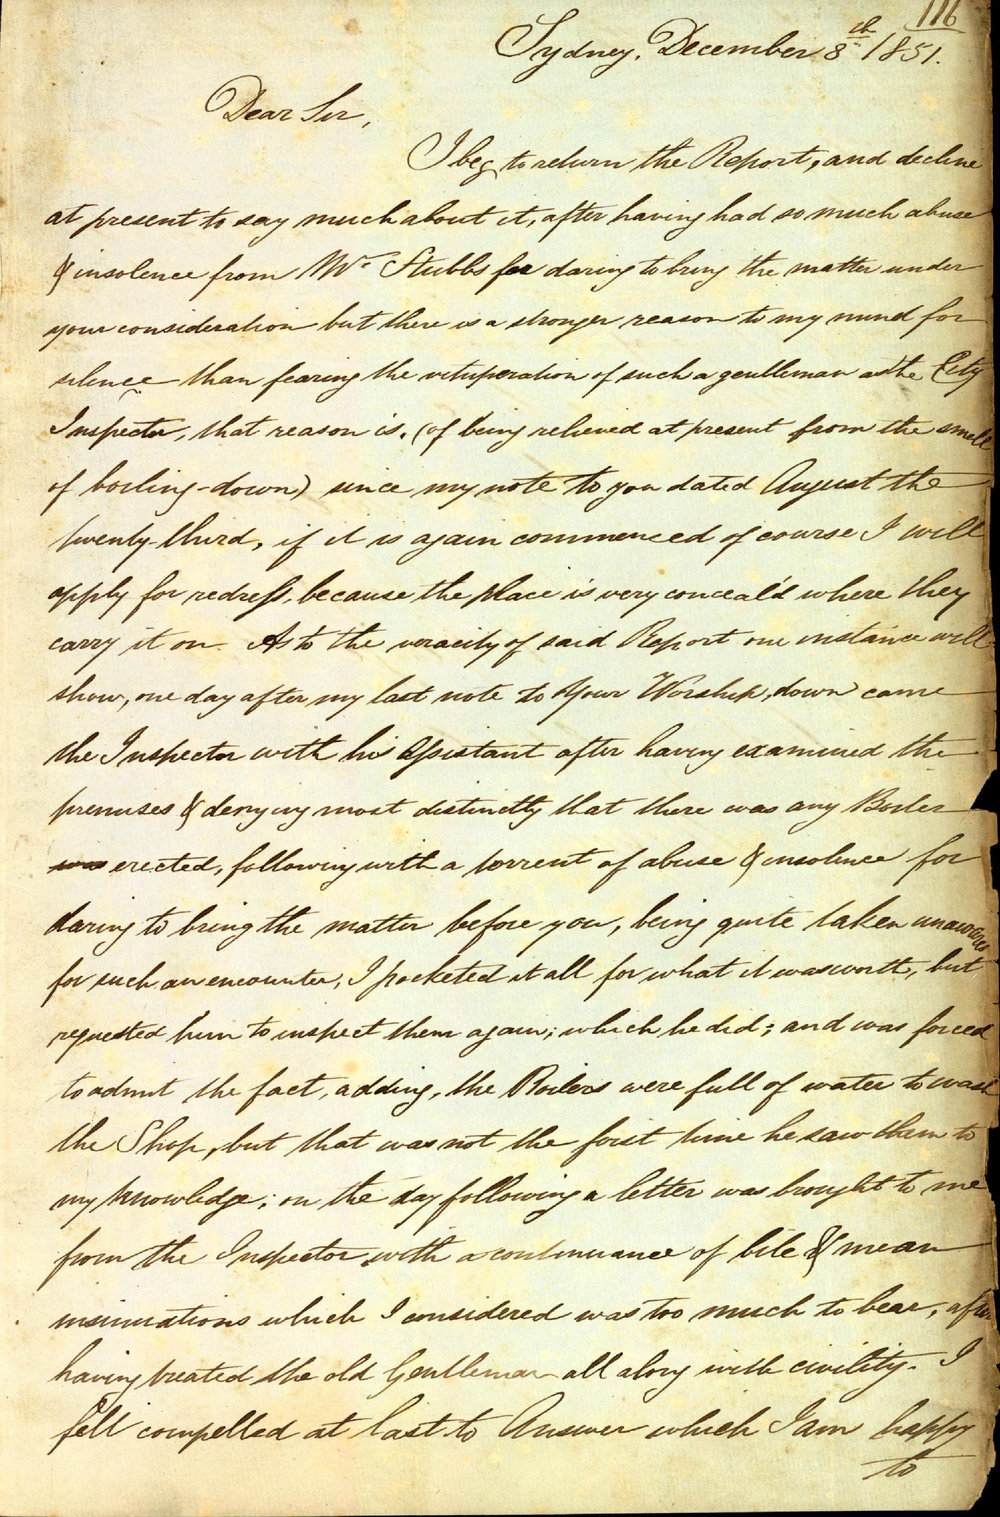 116
Sydney, December 8th 1851.
Dear Sir,
I beg to return the Report, and decline
at present to say much about it, after having had so much abuse
& insolence from Mr Stubbs for daring to bring the matter under
your consideration but there is a stronger reason to my mind for
silence than fearing the vituperation of such a gentleman as the City
Inspector, that reason is, (of being relieved at present from the smell
of boiling-down) since my note to you dated August the
twenty-third, if it is again commenced of course I will
apply for redress, because the place is very conceal'd where they
carry it on. As to the veracity of said Report one instance will
show, one day after my last note to Your Worship, down came
the Inspector with his Assistant after having examined the
premises & denying most distinctly that there was any Boiler
was erected, following with a torrent of abuse & insolence for
daring to bring the matter before you, being quite taken unawares
for such an encounter, I pocketed it all for what it was worth, but
requested him to inspect them again; which he did; and was forced
to admit the fact, adding, the Boilers were full of water to wash
the Shop, but that was not the first time he saw them to
my knowledge; on the day following a letter was brought to me
from the Inspector with a continuance of bile & mean
insinuations which I considered was too much to bear, after
having treated the old Gentleman all along with civility. I
felt compelled at last to Answer which I am happy
to